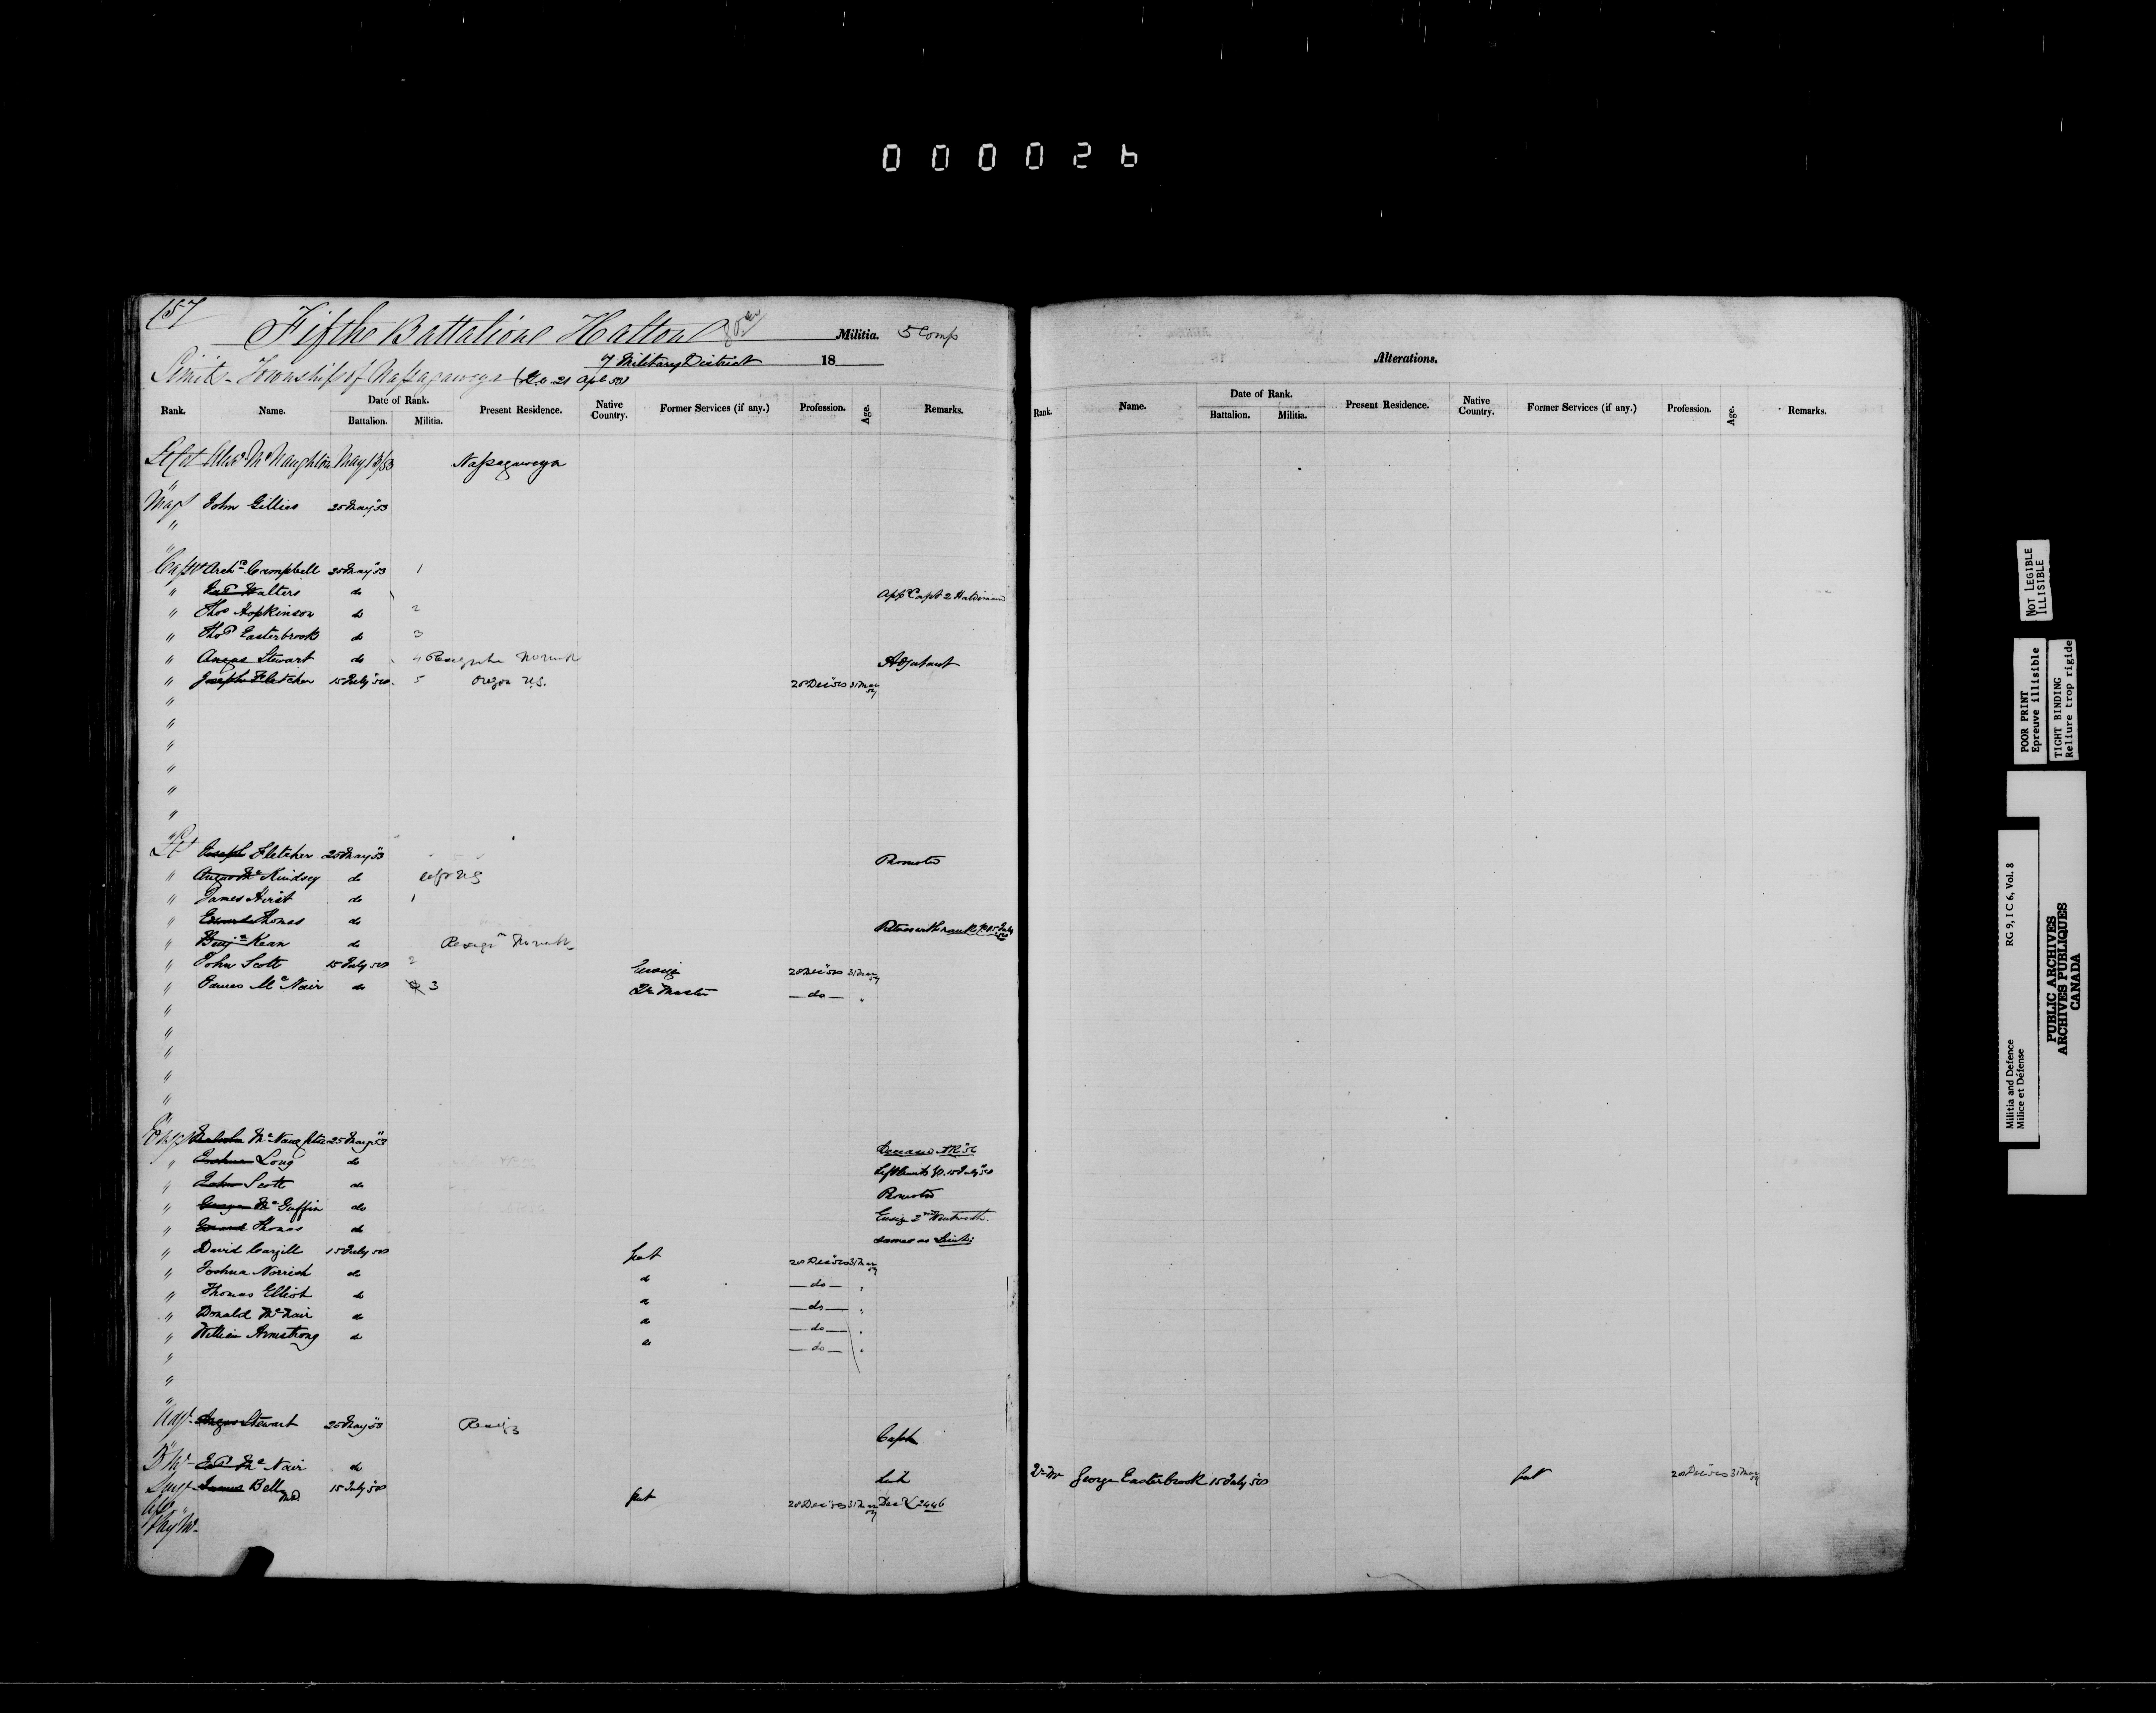 000026
157
Fifth Battalion Halton Militia. 5 Comp
7 Military District 18
Limits - Township of Nassagaweya (G.O. 21 Apl 53)
Alterations.
Rank. Name. Date of Rank. Battalion. Militia. Present Residence. Native Country. Former Services (if any.) Profession. Age. Remarks.
Rank. Name. Date of Rank. Battalion. Militia. Present Residence. Native Country. Former Services (if any.) Profession. Age. Remarks.
Lt Col Alexr McNaughton May 13/53 Nassagaweya
Majr John Gillies 25 May "53
"
"
Capt Archd Campbell 25 May "53 1
" Walters do Appd Capt 2 Haldimand
" Thos Hopkinson do 2
" Thos Easterbrook do 3
" Angus Stewart do 4 Adjutant
" Joseph Fletcher 15 July "58 5 Oregon U.S. 28 Dec "58 31 Mar 59
"
"
"
"
"
"
Lt Joseph Fletcher 25 May "53 Promoted
" Angus McKindsey do left U.S
" James Hirst do 1
" Edward Thomas do
" Benjn Kean do
" John Scott 15 July 58 2 Ensign 28 Dec "58 31 Mar 59
" James McNair do 3 Qr Master —do— "
"
"
"
"
"
Ensgn Malcolm McNaughton 25 May "53 Deceased
" Joshua Long do Left limits GO. 15 July 58
" John Scott do Promoted
" George McGuffin do Ensign 2nd Wentworth.
" Edward Thomas do same as Lieuts
" David Cargill 15 July 58 28 Dec "58 31 Mar 59
" Joshua Norrish do do —do— "
" Thomas Elliot do do —do— "
" Donald McNair do do —do— "
" William Armstrong do do —do— "
"
"
"
Adjt Angus Stewart 25 May "53 Capt
Q Mr Jas McNair do Lieut
Surgn James Bell MD. 15 July 58 28 Dec "58 31 Mar 59 2446
Pay Mr
Qr Mr George Easterbrook 15 July 58 28 Dec "58 31 Mar 59
NOT LEGIBLE
ILLISIBLE
POOR PRINT
Epreuve illisible
TIGHT BINDING
Reliure trop rigide
Militia and Defence RG 9, I C 6, Vol. 8
Milice et Défense
PUBLIC ARCHIVES
ARCHIVES PUBLIQUES
CANADA